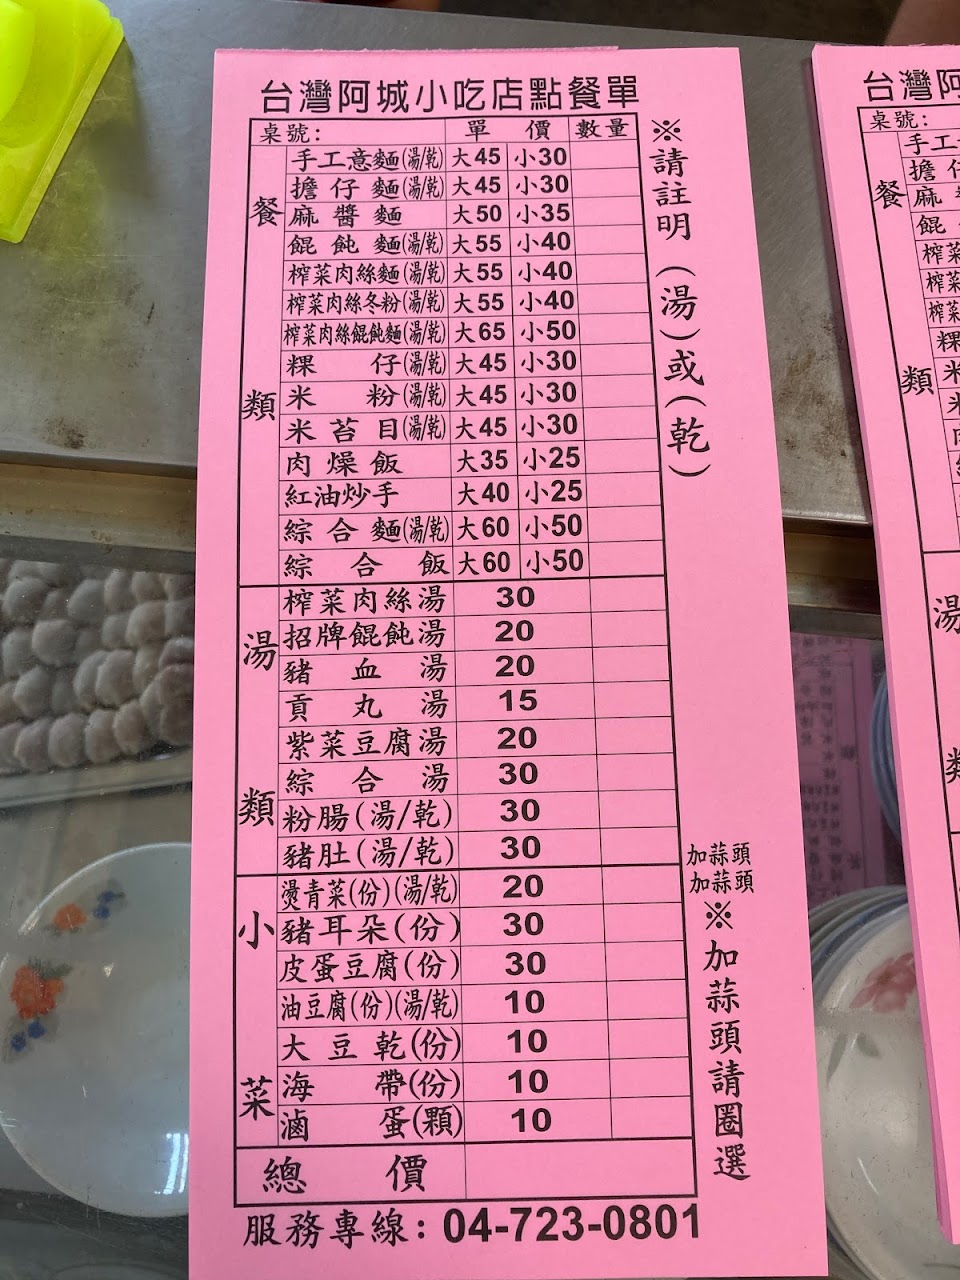 台灣阿城小吃店點餐單
桌號: 單價 數量
餐類
手工意麵(湯/乾) 大45 小30
擔仔麵(湯/乾) 大45 小30
麻醬麵 大50 小35
餛飩麵(湯/乾) 大55 小40
榨菜肉絲麵(湯/乾) 大55 小40
榨菜肉絲冬粉(湯/乾) 大55 小40
榨菜肉絲餛飩麵(湯/乾) 大65 小50
粿仔(湯/乾) 大45 小30
米粉(湯/乾) 大45 小30
米苔目(湯/乾) 大45 小30
肉燥飯 大35 小25
紅油炒手 大40 小25
綜合麵(湯/乾) 大60 小50
綜合飯 大60 小50
湯類
榨菜肉絲湯 30
招牌餛飩湯 20
豬血湯 20
貢丸湯 15
紫菜豆腐湯 20
綜合湯 30
粉腸(湯/乾) 30
豬肚(湯/乾) 30
小菜
燙青菜(份)(湯/乾) 20
豬耳朵(份) 30
皮蛋豆腐(份) 30
油豆腐(份)(湯/乾) 10
大豆乾(份) 10
海帶(份) 10
滷蛋(顆) 10
總價
服務專線: 04-723-0801
※請註明(湯)或(乾)
加蒜頭
加蒜頭
※加蒜頭請圈選
台灣阿
桌號:
餐類
手工
擔仔
麻
餛
榨菜
榨菜
榨菜
粿
米
米
湯類